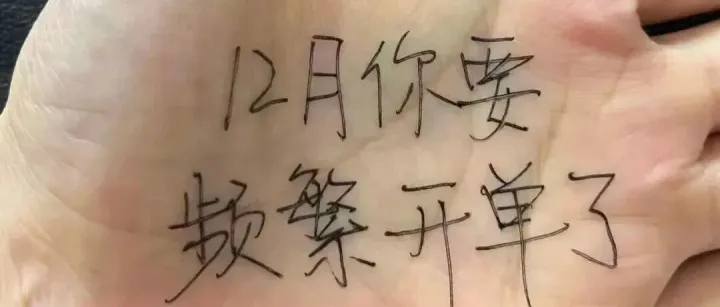 12月你要
频繁开单了